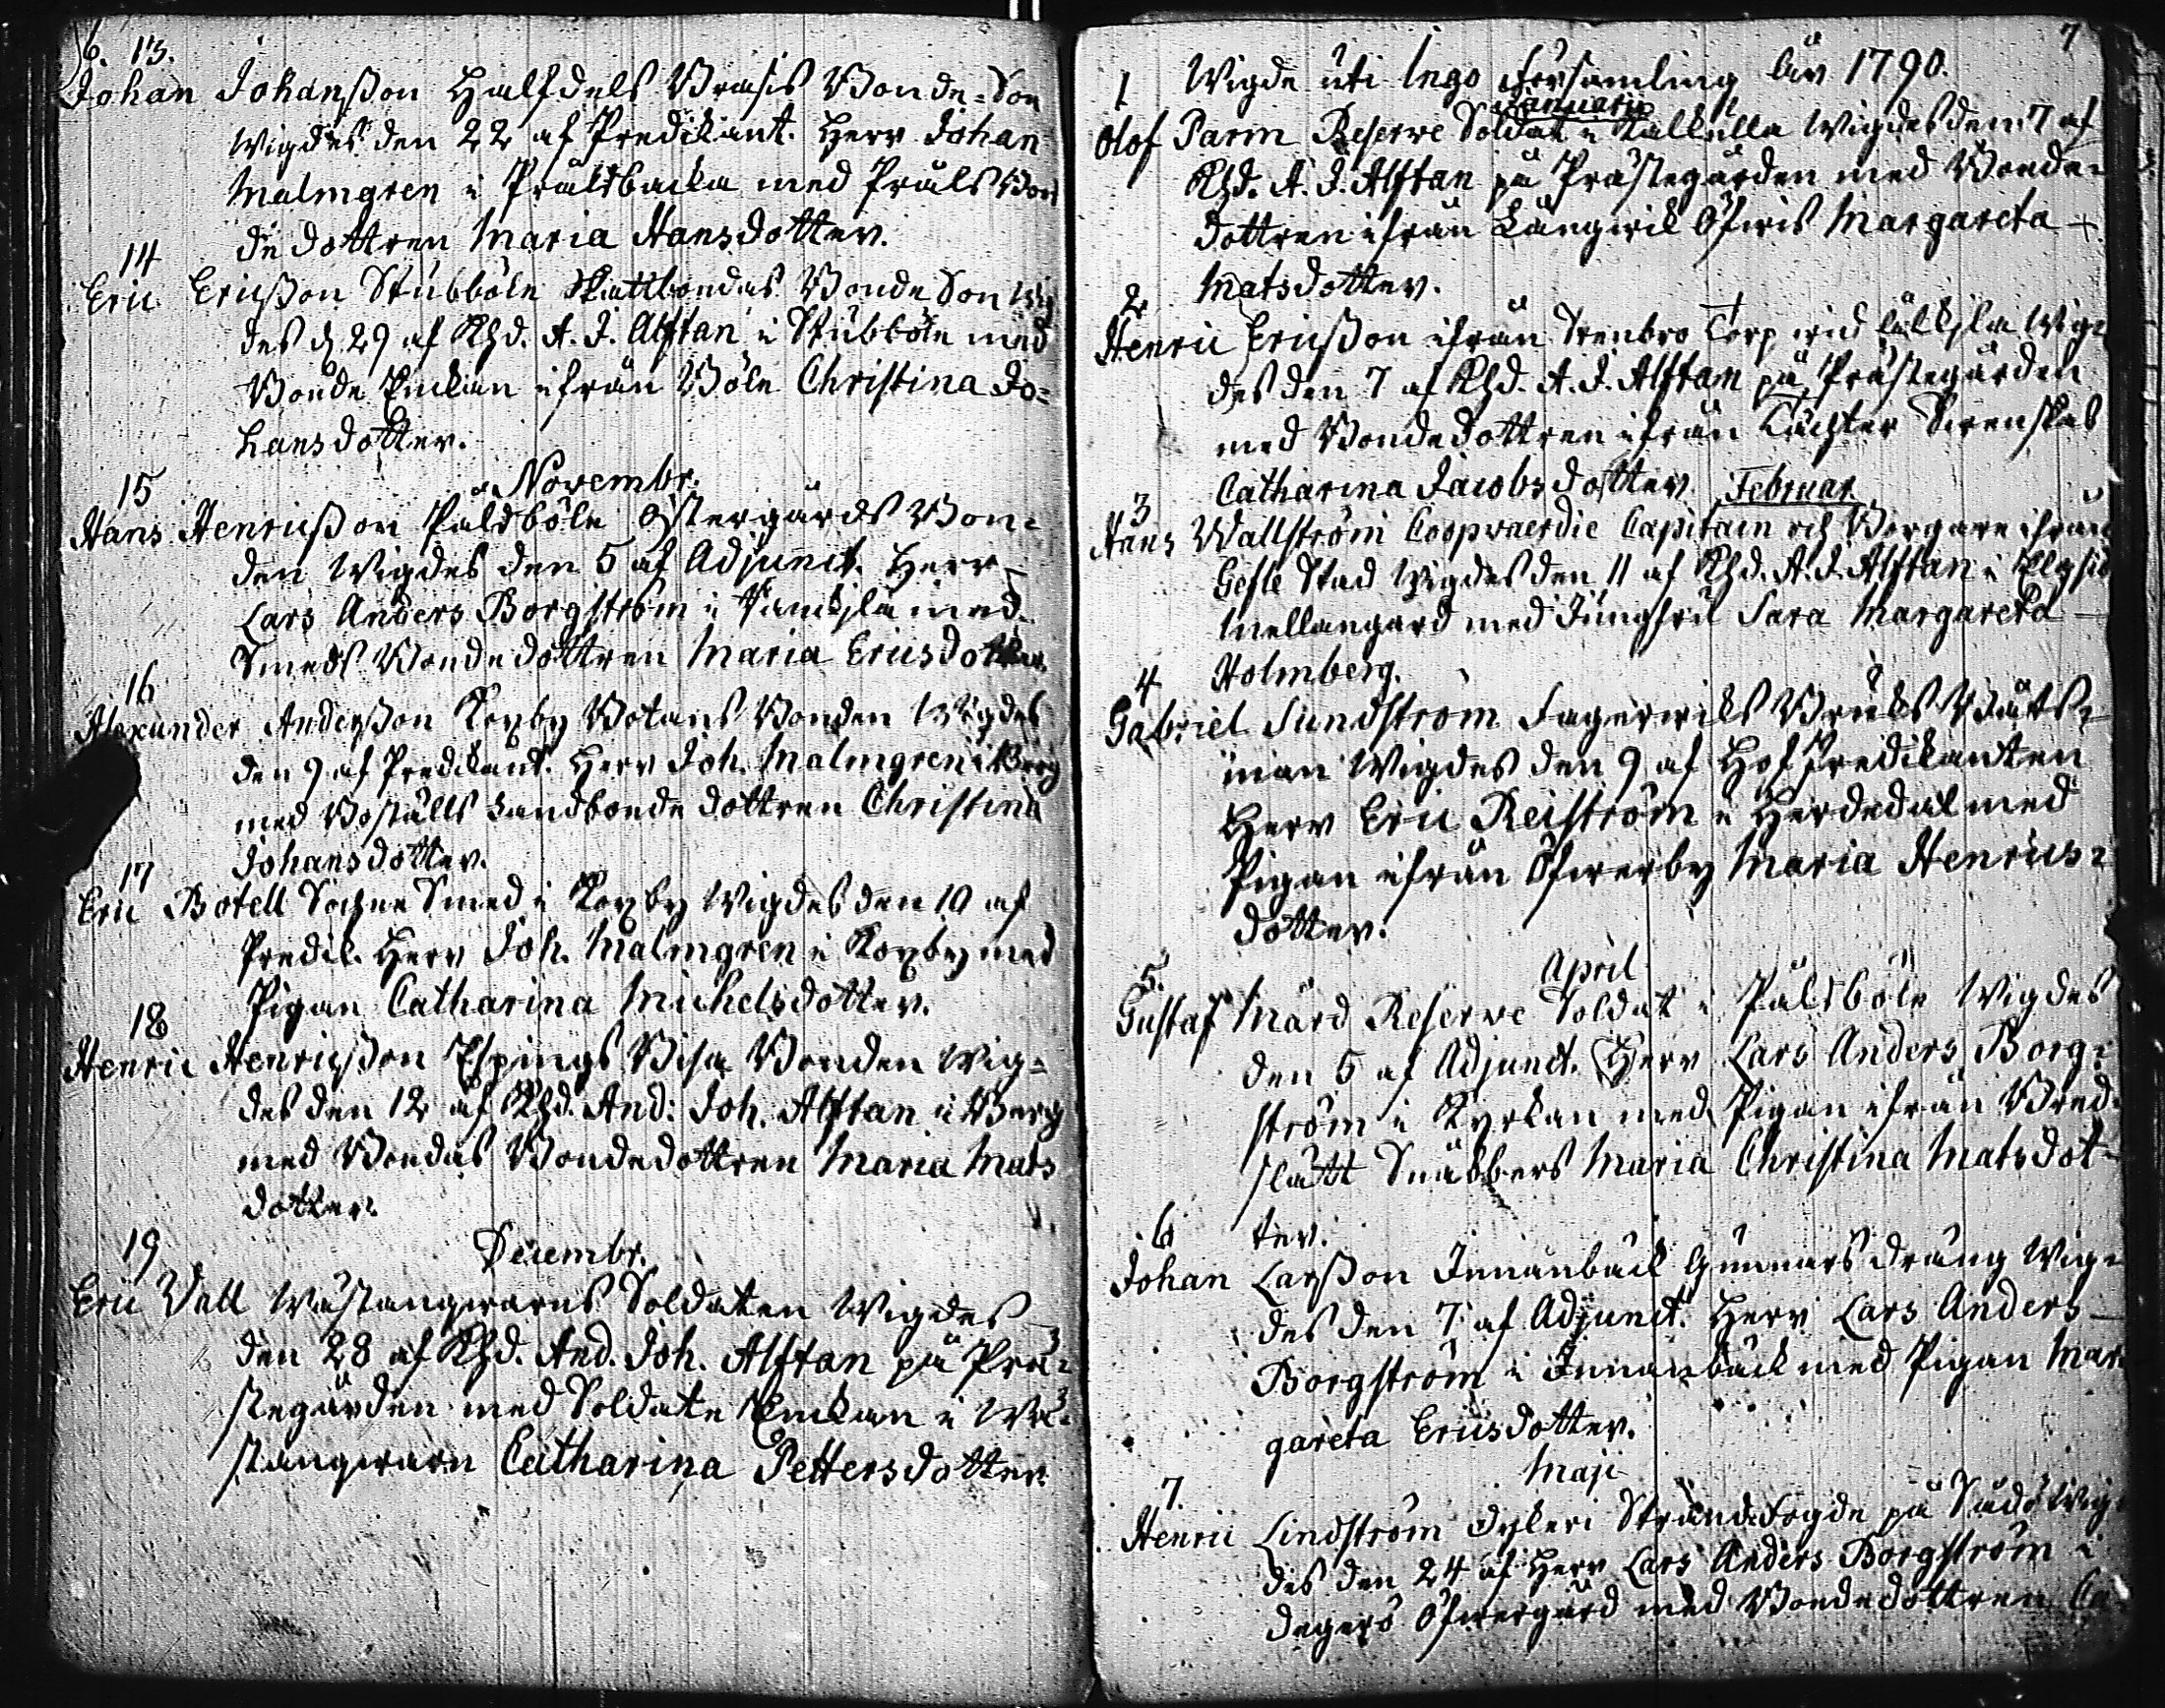 6.
13.
Johan Johansson Halfdels Brasis Bonde-Son
Wigdes den 22 af Predikant. Herr Johan
Malmgren i Präldbacka med Präls Bon
de dottren Maria Hansdotter.
14
Eric Ericsson Stubböle Skattbondas Bonde Son Wig
des d. 29 af Khd. A. J. Alftan i Stubböle med
Bonde Enckan ifrån Böle Christina Jo=
hansdotter.
Novembr.
15
Hans Henricsson Påldböle Östergårds Bon=
den Wigdes den 5 af Adjunct. Herr
Lars Anders Borgström i med
Smeds Bondedottren Maria Ericsdotter
16
Alexander Andersson Kopby Botans Bonden Wigdes
den 9 af Predikant. Herr Joh. Malmgren i Berg
med Boställs Landbonde dottren Christina
Johansdotter.
17
Eric Botell Sochne Smed i Kopby Wigdes den 10 af
Predik. Herr Joh. Malmgren i Kopby med
Pigan Catharina Michelsdotter.
18
Henric Henricsson Espings Bisa Bonden Wig=
des den 12 af Khd. And: Joh. Alftan i Berg
med Bondas Bondedottren Maria Mats
dotter.
Decembr.
19
Eric Vall Wästangwarns Soldaten Wigdes
den 28 af Khd. And. Joh. Alftan på Prä=
stegården med Soldate Enckan i Wä=
stangwarn Catharina Pettersdotter
7
Wigde uti Ingo Församling åhr 1790.
Januarii
1
Olof Parm Reserwe Soldat i Kallkulla Wigdes den 7 af
Khd. A. J. Alftan på Prästegården med Bonde=
dottren ifrån Långwik Öfwis Margareta
Matsdotter.
2
Henric Ericsson ifrån Stenbro Torp wid Wig=
des den 7 af Khd. A. J. Alftan på Prästegården
med Bondedottren ifrån Täckter Swenskas
Catharina Jacobsdotter
Februar.
3
Hans Wallström Coopvaerdie Capitain och Borgare ifrån
Gefle Stad Wigdes den 11 af Khd. A. J. Alftan i Elgsiö
Mellangård med Jungfru Sara Margareta
Holmberg.
4
Gabriel Sundström Fagerwiks Bruks Båts=
man Wigdes den 9 af Hof Predikanten
Herr Eric Reiström i Herdedal med
Pigan ifrån Öfwerby Maria Henrics=
dotter.
April
5.
Gustaf Mård Reserwe Soldat i Påldböle Wigdes
den 5 af Adjunct. Herr Lars Anders Borg=
ström i Kyrkan med Pigan ifrån Bred=
slätt Snäbbers Maria Christina Matsdot=
ter.
6
Johan Larsson Innanbäck Gunnars dräng Wig=
des den 7 af Adjunct. Herr Lars Anders
Borgström i Innanbäck med Pigan Mar
gareta Ericsdotter.
Maji
7.
Henric Lindström Strandfogde på Wig=
des den 24 af Herr Lars Anders Borgström i
Degerö Öfwergård med Bondedottren Ca